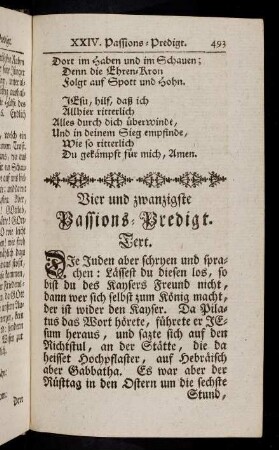 XXIV. Passions-Predigt. 493
Dort im Haben und im Schauen;
Denn die Ehren-Kron
Folgt auf Spott und Hohn.
JEsu, hilf, daß ich
Allhier ritterlich
Alles durch dich überwinde,
Und in deinem Sieg empfinde,
Wie so ritterlich
Du gekämpft für mich, Amen.
Vier und zwanzigste
Passions-Predigt.
Text.
DJe Juden aber schryen und spra-
chen: Lässest du diesen los, so
bist du des Kaysers Freund nicht,
dann wer sich selbst zum König macht,
der ist wider den Kayser. Da Pila-
tus das Wort hörete, führete er JE-
sum heraus, und sazte sich auf den
Richtstul, an der Stätte, die da
heisset Hochpflaster, auf Hebräisch
aber Gabbatha. Es war aber der
Rüsttag in den Ostern um die sechste
Stund,